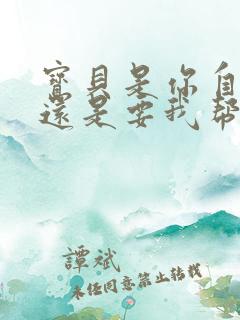 寶貝是你自
還是要我幫
譚斌
未經同意禁止轉載